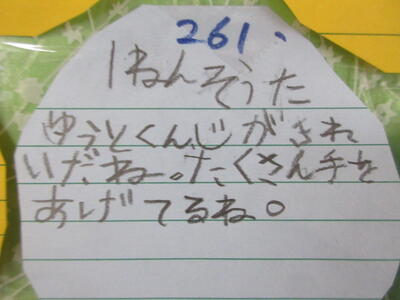 261.
1ねんそうた
ゆうとくんじがきれ
いだねー。たくさん手を
あげてるね。